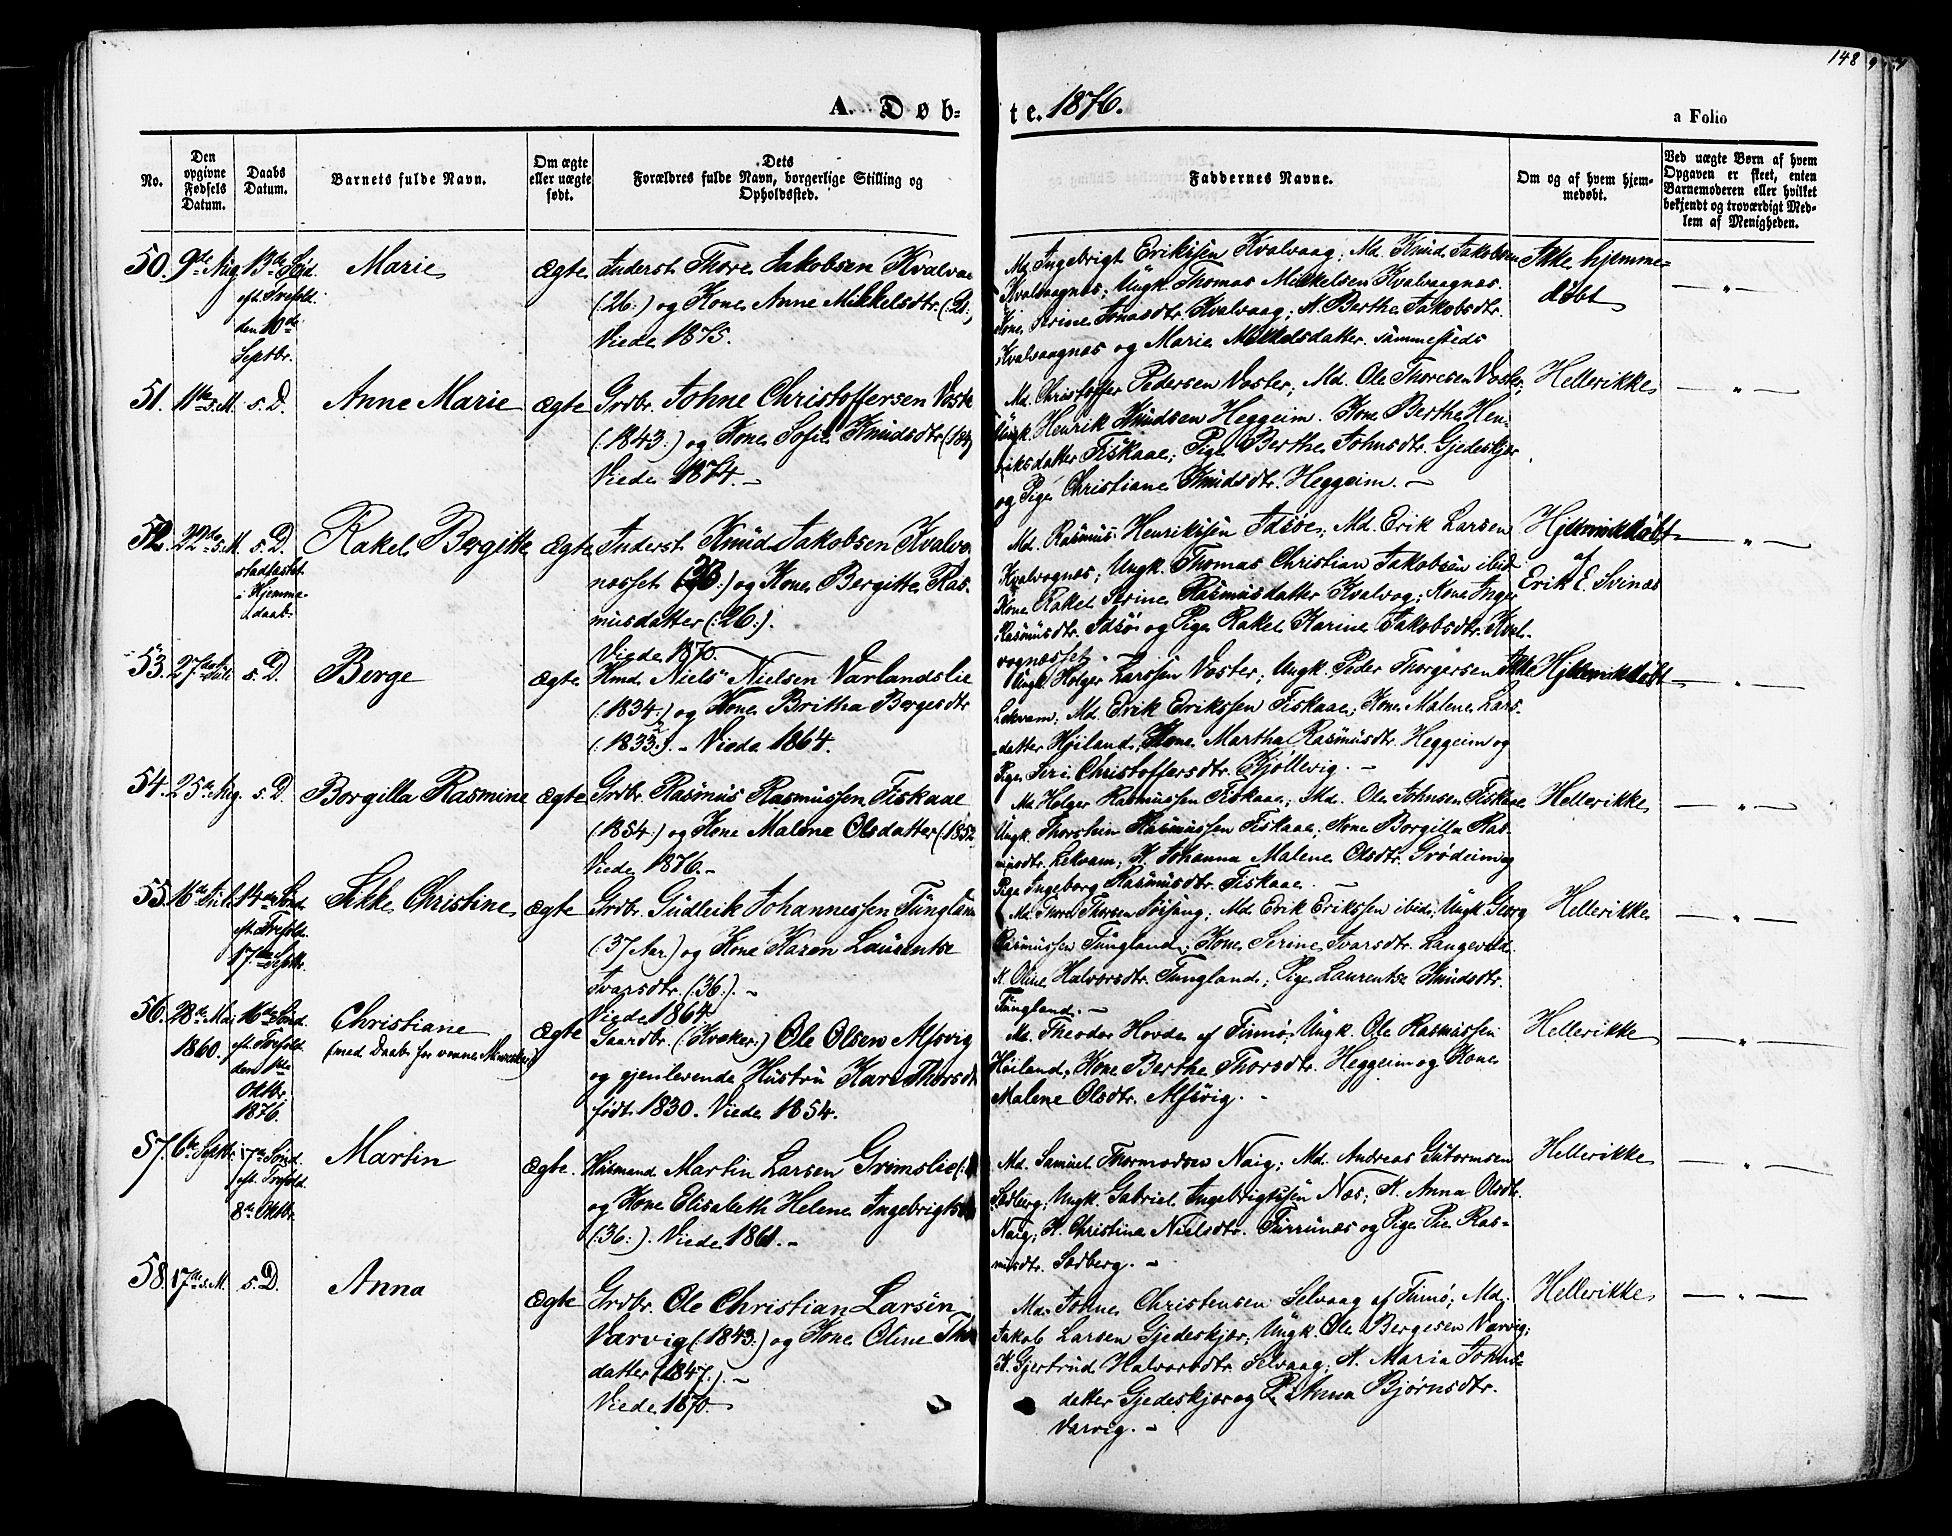 148
A. Døb-
te. 1876.
a Folio
No.
Den opgivne Fødsels Datum.
Daabs Datum.
Barnets fulde Navn.
Om ægte eller uægte født.
Dets Forældres fulde Navn, borgerlige Stilling og Opholdssted.
Faddernes Navne.
Om og af hvem hjemmedøbt.
Ved uægte Børn af hvem Opgaven er skeet, enten Barnemoderen eller hvilket bekjendt og troværdigt Medlem af Menigheden.
50. 9de Aug. 13de Sønd. eft. Trefold. den 10de Septbr.
Marie
Ægte
Inderst Thore Jakobsen Kvalvaa
(:26:) og Kone Anne Mikkelsdtr. (:21:
Viede 1875.
Md. Ingebrigt Eriksen Kvalvaag; Md. Knud Jakobsen
Kvalvaagnæs; Ungk. Thomas Mikkelsen Kvalvaagnæs.
Kone Serine Jonasdtr. Kvalvaag; K. Berthe Jakobsdtr.
Kvalvaagnæs og Marie Mikkelsdatter sammesteds
Ikke hjemme-
døbt
— " —
51. 11te s. M. s. D.
Anne Marie
Ægte
Grdbr. Johne Christoffersen Voste
(:1843:) og Kone Sofie Knudsdtr (184
Viede 1874. —
Md. Christoffer Pedersen Voster; Md. Ole Thoresen Voster;
Ungk. Henrik Knudsen Heggeim. Kone Berthe Hen-
riksdatter Fiskaae; Pige Berthe Johnsdtr. Gjedeskjær
og Pige Christiane Knudsdtr. Heggeim. —
Hellerikke
— " —
52. 22de s. M. s. D.
stadfæstet
i Hjemme-
daab.
Rakel Bergitte
Ægte
Inderst Knud Jakobsen Kvalva
næsset (:26:) og Kone Bergitte Ras-
musdatter (:26:).
Viede 1870.
Md. Rasmus Henriksen Idsøe; Md. Erik Larsen
Kvalvognæs; Ungk. Thomas Christian Jakobsen ibid.
Kone Rakel Serine Rasmusdatter Kvalvog; Kone Inger
Rasmusdtr. Idsø og Pige Rakel Karine Jakobsdtr. Kval-
vognæsset.
Hjemmedøbt
af
Erik E. Svinæs
— " —
53. 27de Juli s. D.
Børge
Ægte
Hmd. Niels Nielsen Varlandslie
(:1834:) og Kone Britha Børgesdtr
(:1833:). - Viede 1864.
Ungk. Holger Larssen Voster; Ungk. Peder Thorgersen
Lekvam; Md. Erik Erikssen Fiskaae; Kone Malene Lars-
datter Høiland; Kone Martha Rasmusdtr. Heggeim og
Pige Seri Christoffersdtr. Kjøllevig. —
Ikke Hjemmedøbt
— " —
54. 25de Aug. s. D.
Borgilla Rasmine
Ægte
Grdbr. Rasmus Rasmussen Fiskaae
(:1854:) og Kone Malene Olsdatter (1852
Viede 1876. -
Md. Holger Rasmussen Fiskaae; Md. Ole Johnsen Fiskaae
Ungk. Thorstein Rasmussen Fiskaae; Kone Borgilla Ras-
musdtr. Lekvam; K. Johanna Malene Olsdtr. Grødeim og
Pige Ingeborg Rasmusdtr. Fiskaae. —
Hellerikke
— " —
55. 16de Juli 14de Sønd. eft. Trefold. 17de Septbr.
Sikke Christine
Ægte
Grdbr. Gudleik Johannessen Tungland
(37 Aar) og Kone Karen Laurentse
Ivarsdtr. (:36:). -
Viede 1864
Md. Thore Thorsen; Md. Erik Erikssen ibid; Ungk. Georg
Rasmussen Tungland; Kone Serine Ivarsdtr. Langeveld
K. Oline Halvorsdtr. Tungland; Pige Laurentse Knudsdtr.
Tungland. —
Hellerikke
— " —
56. 28de Mai 1860. 16de Sønd. eft. Trefold. den 1ste Oktbr. 1876.
Christiane
(med Daab for voxne Mennesker)
Ægte
Gaardbr. (:Kvæker:) Ole Olsen Alfsvig
og gjenlevende Hustru Kari Thorsd
født 1830. Viede 1854.
Md. Theodor Hovde af Finnø; Ungk. Ole Rasmussen
Høiland; Kone Berthe Thorsdtr. Heggeim og Kone
Malene Olsdtr. Alfsvig. -
Hellerikke
— " —
57. 6te Septbr. 17de Sønd. eft. Trefold. 8de Oktbr.
Martin
Ægte.
Husmand Martin Larsen Grimslie (:
og Kone Elisabeth Helene Ingebrigtsd
(:36:). Viede 1861. -
Md. Samuel Thormodsen Naig; Md. Andreas Gutormsen
Sedberg; Ungk. Gabriel Ingebrigtsen Næs; K. Anna Olsdtr.
Naig; K. Christine Nielsdtr. Furrunæs og Pige Pie Ras-
musdtr. Sedberg. -
Hellerikke
— " —
58. 17de s. M. s. D.
Anna
Ægte
Grdbr. Ole Christian Larsen
Varvig (:1843:) og Kone Oline Tho
datter (:1847:). —
Viede 1870.
Md. Johne Christensen Selvaag af Finnø; Md.
Jakob Larsen Gjedeskjær; Ungk. Ole Børgesen Varvig;
K. Gjertrud Halvorsdtr. Selvaag; K. Maria Johns-
datter Gjedeskjær og P. Anna Bjørnsdtr.
Varvig. —
Hellerikke
— " —